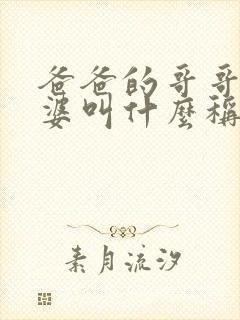 爸爸的哥哥
婆叫什麼稱
素月流汐